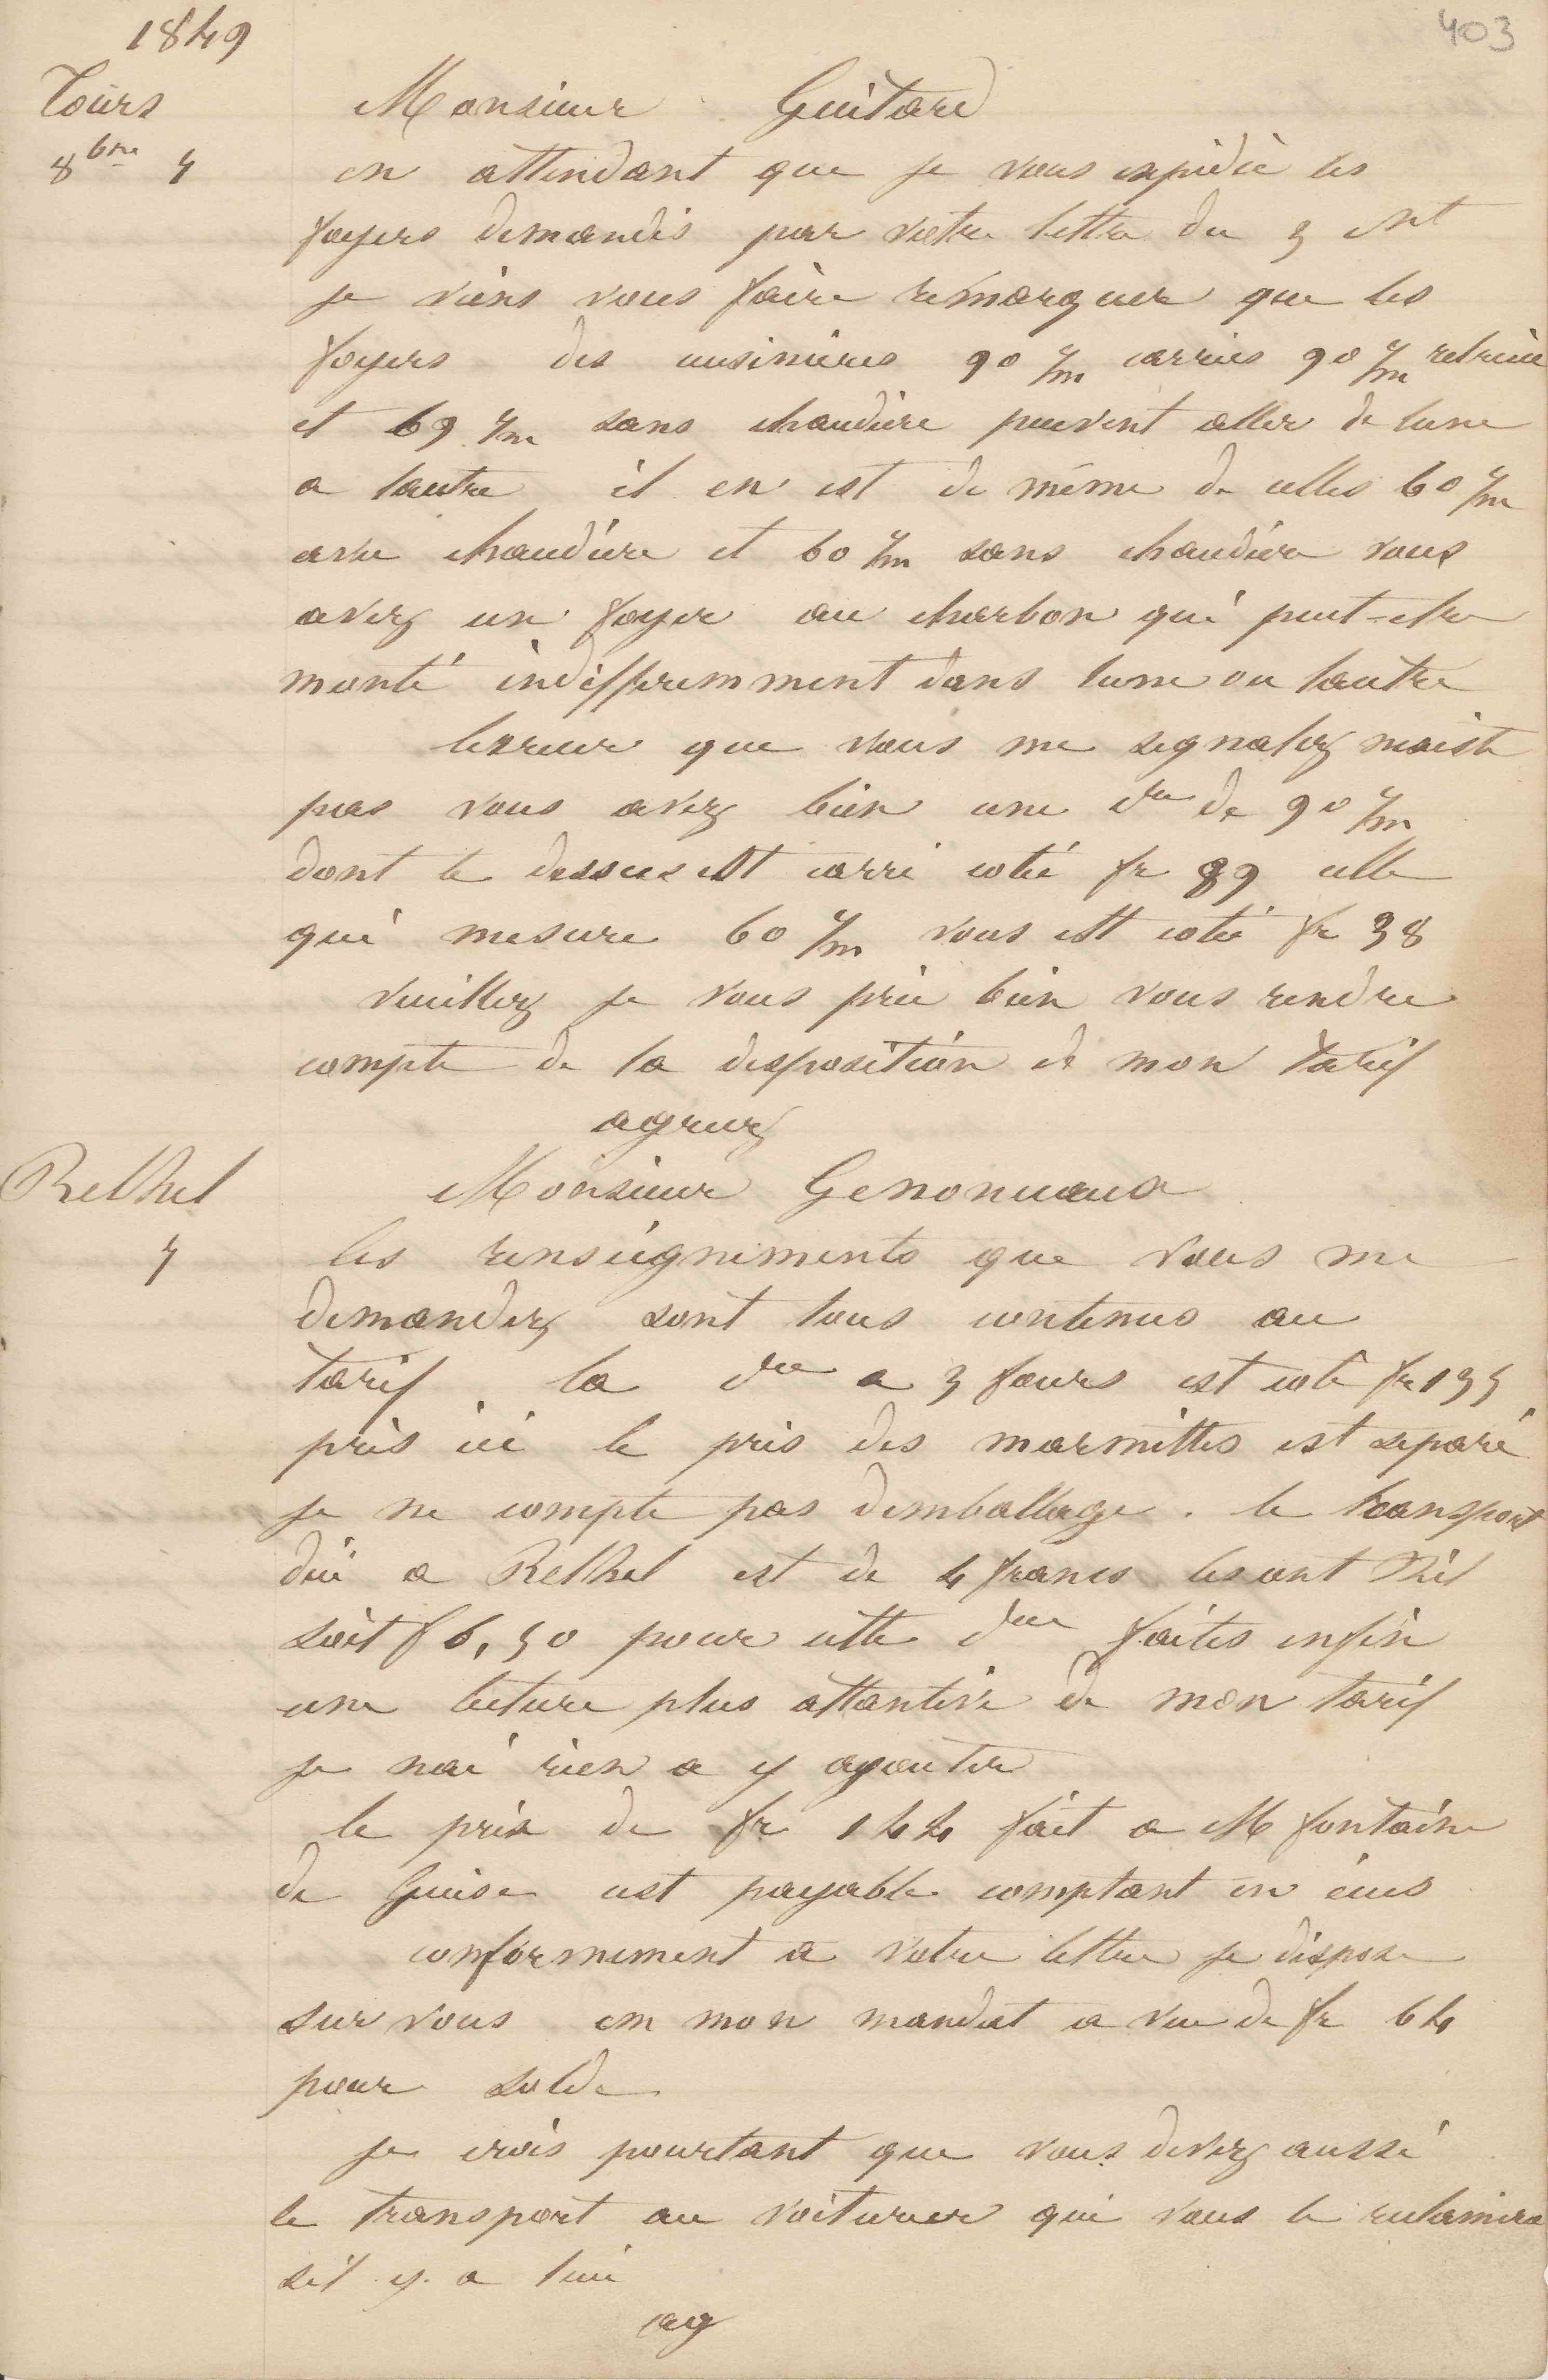 403
1849
Tours
8bre 5
Monsieur Guitard
en attendant que je vous expédie les
foyers demandés par votre lettre du 3 ct
je viens vous faire remarquer que les
foyers des cuisinières 90 c/m carrées 90 c/m retrécie
et 69 c/m sans chaudière peuvent aller de lune
a lautre il en est de même de celles 60 c/m
avec chaudière et 60 c/m sans chaudière vous
avez un foyer au charbon qui peut-etre
monté indifferemment dans lune ou lautre
lerreur que vous me signalez nexiste
pas vous avez bien une dre de 90 c/m
dont le dessus est carré coté fr 89 celle
qui mesure 60 c/m vous est coté fr 38
veuillez je vous prie bien vous rendre
compte de la disposition de mon tarif
agreez
Rethel
5
Monsieur Genonceaux
les renseignements que vous me
demandez sont tous contenus au
tarif. la dre a 3 fours est coté fr 135
pris ici le prix des marmittes est separé
je ne compte pas demballage. le transport
dici a Rethel est de 4 francs les cent Kil
soit f 6,50 pour cette dre faites enfin
une lecture plus attantive de mon tarif
je nai rien a y ajouter
le prix de fr 144 fait a M fontaine
de Guise est payable comptant en écus
conformement a votre lettre je dispose
sur vous en mon mandat a vue de fr 64
pour solde
je crois pourtant que vous devez aussi
le transport au voiturier qui vous le reclamera
sil y a lieu
ag